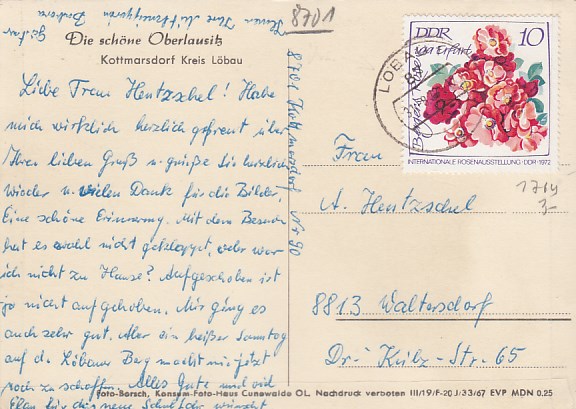 8701
Die schöne Oberlausitz
Kottmarsdorf Kreis Löbau
Liebe Frau Hentzschel! Habe
mich wirklich herzlich gefreut über
Ihren lieben Gruß u. grüße Sie herzlich
wieder u. vielen Dank für die Bilder.
Eine schöne Erinnerung. Mit dem Besuch
hat es wohl nicht geklappt, oder war
ich nicht zu Hause? Aufgeschoben ist
ja nicht aufgehoben. Mir ging es
auch sehr gut. Aber ein heißer Sonntag
auf d. Löbauer Berg macht mir jetzt
noch zu schaffen. Alles Gute und viel
für das neue Schuljahr wünscht
8701 Kottmarsdorf Nr 90
DDR 10
Erfurt
INTERNATIONALE ROSENAUSSTELLUNG · DDR · 1972
LÖBAU
Frau
A. Hentzschel
1714
3-
8813 Waltersdorf
Dr.-Külz-Str. 65
Foto-Borsch, Konsum-Foto-Haus Cunewalde OL, Nachdruck verboten III/19/F-20 J/33/67 EVP MDN 0.25